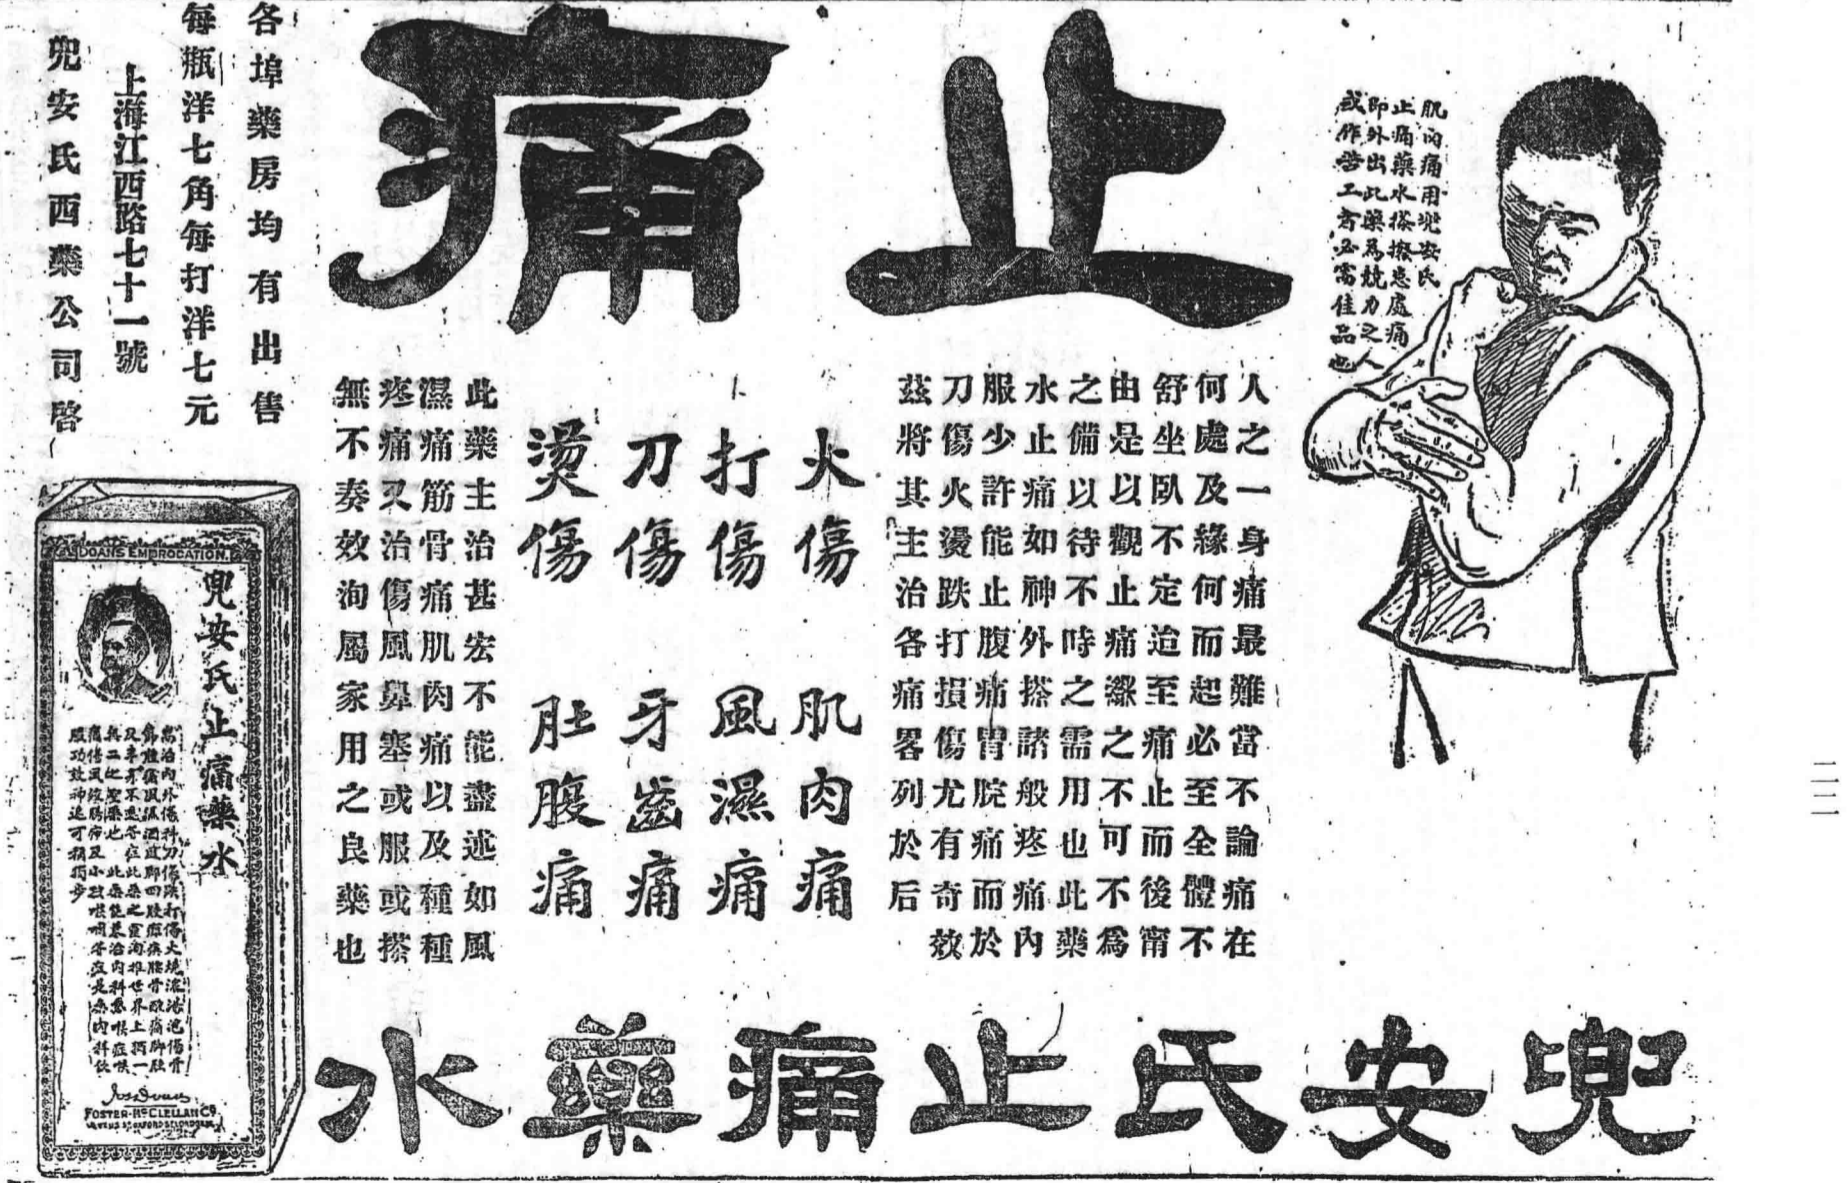 止痛
肌肉痛用兜安氏
止痛藥水搽擦患處痛
即外出此藥為競力之人
或作苦工者必需佳品也
人之一身痛最難當不論痛在
何處及緣何而起必至全體不
舒坐臥不定迨至痛止而後甯
由是以觀止痛藥之不可不為
之備以待不時之需用也此藥
水止痛如神外搽諸般疼痛內
服少許能止腹痛胃脘痛而於
刀傷火燙跌打損傷尤有奇效
茲將其主治各痛畧列於后
火傷 肌肉痛
打傷 風濕痛
刀傷 牙齒痛
燙傷 肚腹痛
此藥主治甚宏不能盡述如風
濕痛筋骨痛肌肉痛以及種種
疼痛又治傷風鼻塞或服或搽
無不奏效洵屬家用之良藥也
兜安氏止痛藥水
各埠藥房均有出售
每瓶洋七角每打洋七元
上海江西路七十一號
兜安氏西藥公司啓
DOAN'S EMBROCATION.
兜安氏止痛藥水
服功效神速可稱獨步
FOSTER-McCLELLAN Co
二二